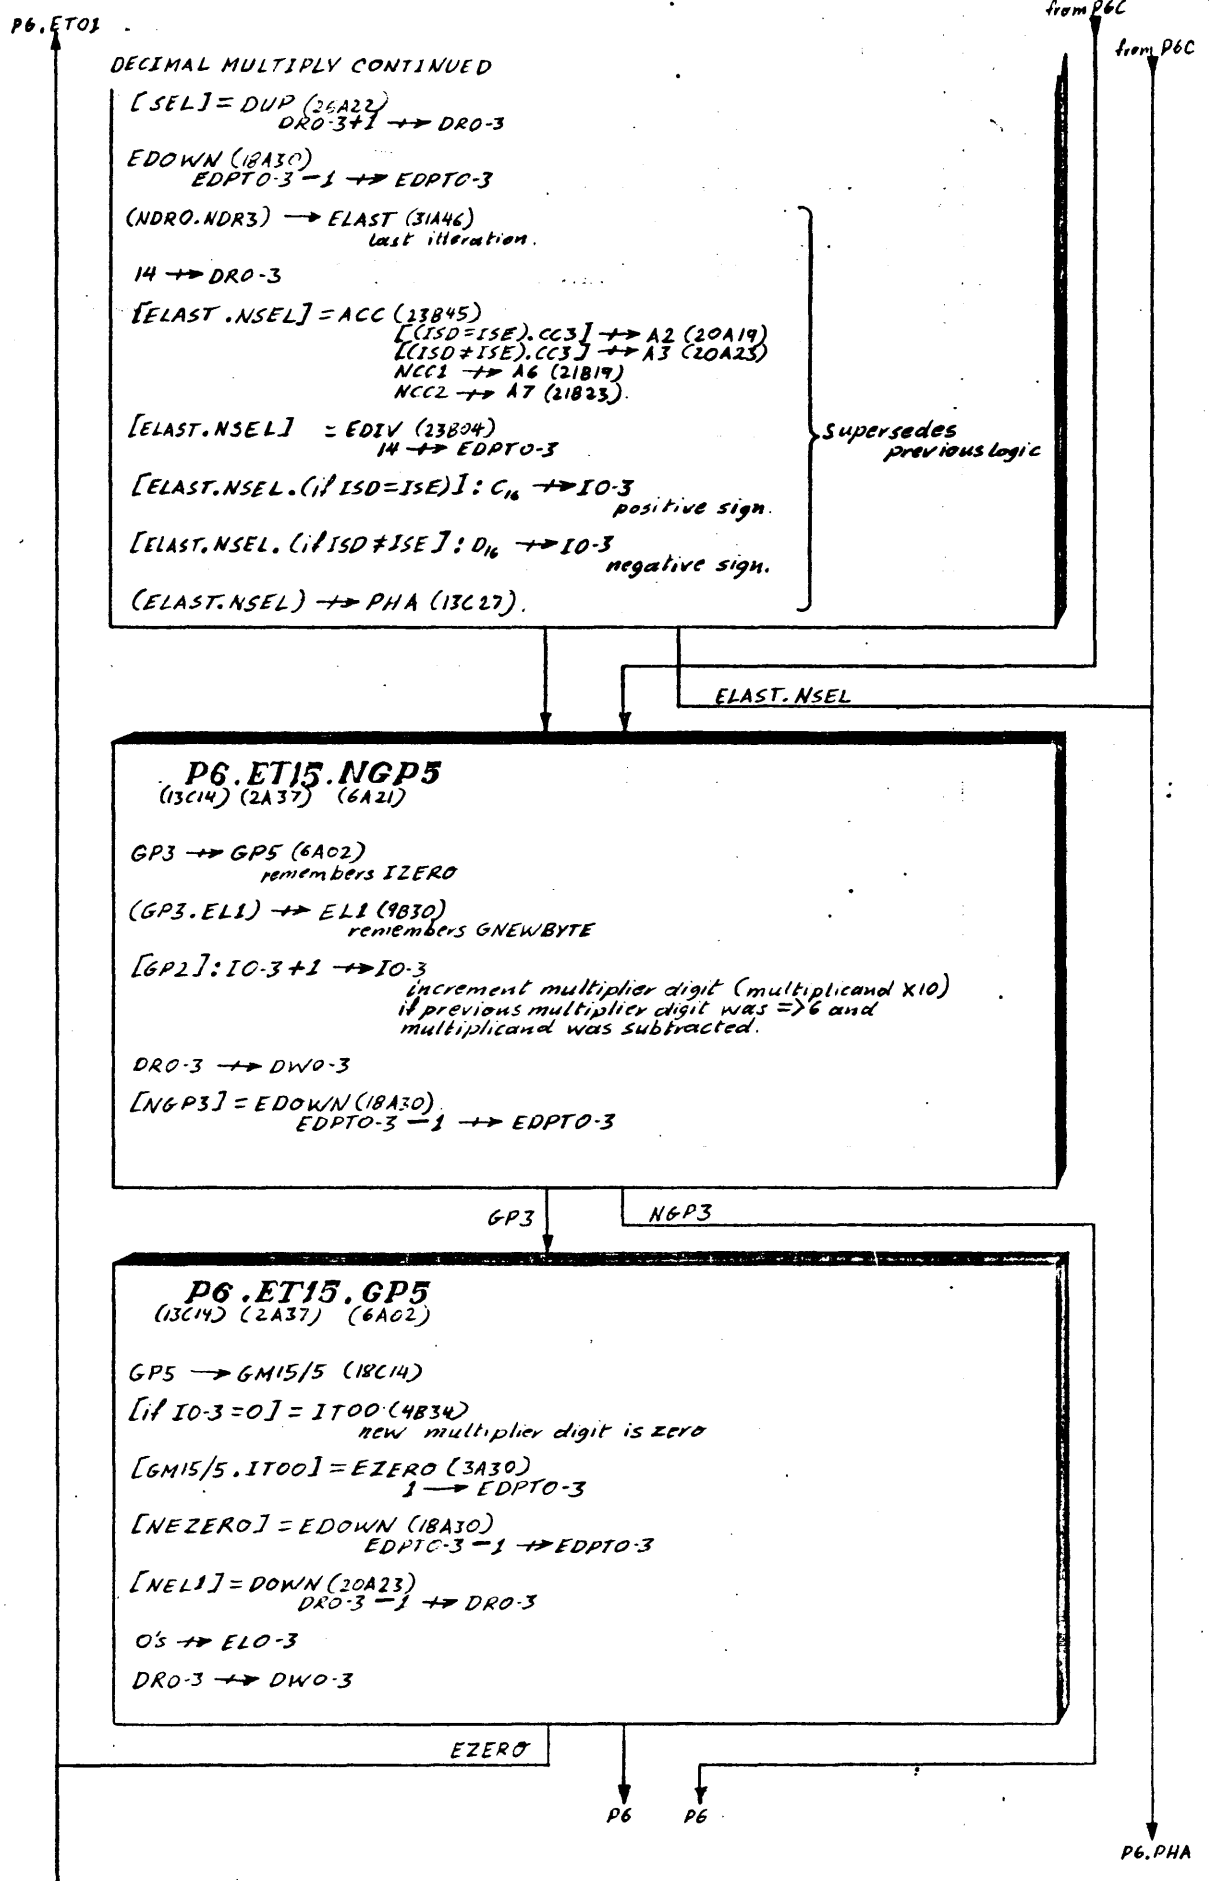 P6.ET01
from P6C
from P6C
DECIMAL MULTIPLY CONTINUED
[SEL] = DUP (26A22)
DR0-3+1 ↛ DR0-3
EDOWN (18A30)
EDPT0-3 -1 ↛ EDPT0-3
(NDR0.NDR3) → ELAST (31A46)
last itteration.
14 ↛ DR0-3
[ELAST.NSEL] = ACC (23B45)
[(ISD=ISE).CC3] ↛ A2 (20A19)
[(ISD≠ISE).CC3] ↛ A3 (20A23)
NCC1 ↛ A6 (21B19)
NCC2 ↛ A7 (21B23).
[ELAST.NSEL] = EDIV (23B04)
14 ↛ EDPT0-3
Supersedes
previous logic
[ELAST.NSEL.(if ISD=ISE)]: C₁₆ ↛ I0-3
positive sign.
[ELAST.NSEL.(if ISD≠ISE]: D₁₆ ↛ I0-3
negative sign.
(ELAST.NSEL) ↛ PHA (13C27).
ELAST.NSEL
P6.ET15.NGP5
(13C14) (2A37) (6A21)
GP3 ↛ GP5 (6A02)
remembers IZERO
(GP3.EL1) ↛ EL1 (9B30)
remembers GNEWBYTE
[GP2]: I0-3+1 ↛ I0-3
increment multiplier digit (multiplicand X10)
if previous multiplier digit was =>6 and
multiplicand was subtracted.
DR0-3 ↛ DW0-3
[NGP3] = EDOWN (18A30).
EDPT0-3 -1 ↛ EDPT0-3
GP3
NGP3
P6.ET15.GP5
(13C14) (2A37) (6A02)
GP5 → GM15/5 (18C14)
[if I0-3=0] = IT00 (4B34)
new multiplier digit is zero
[GM15/5.IT00] = EZERO (3A30)
1 → EDPT0-3
[NEZERO] = EDOWN (18A30)
EDPT0-3 -1 ↛ EDPT0-3
[NEL1] = DOWN (20A23)
DR0-3 -1 ↛ DR0-3
0's ↛ EL0-3
DR0-3 ↛ DW0-3
EZERO
P6
P6
P6.PHA